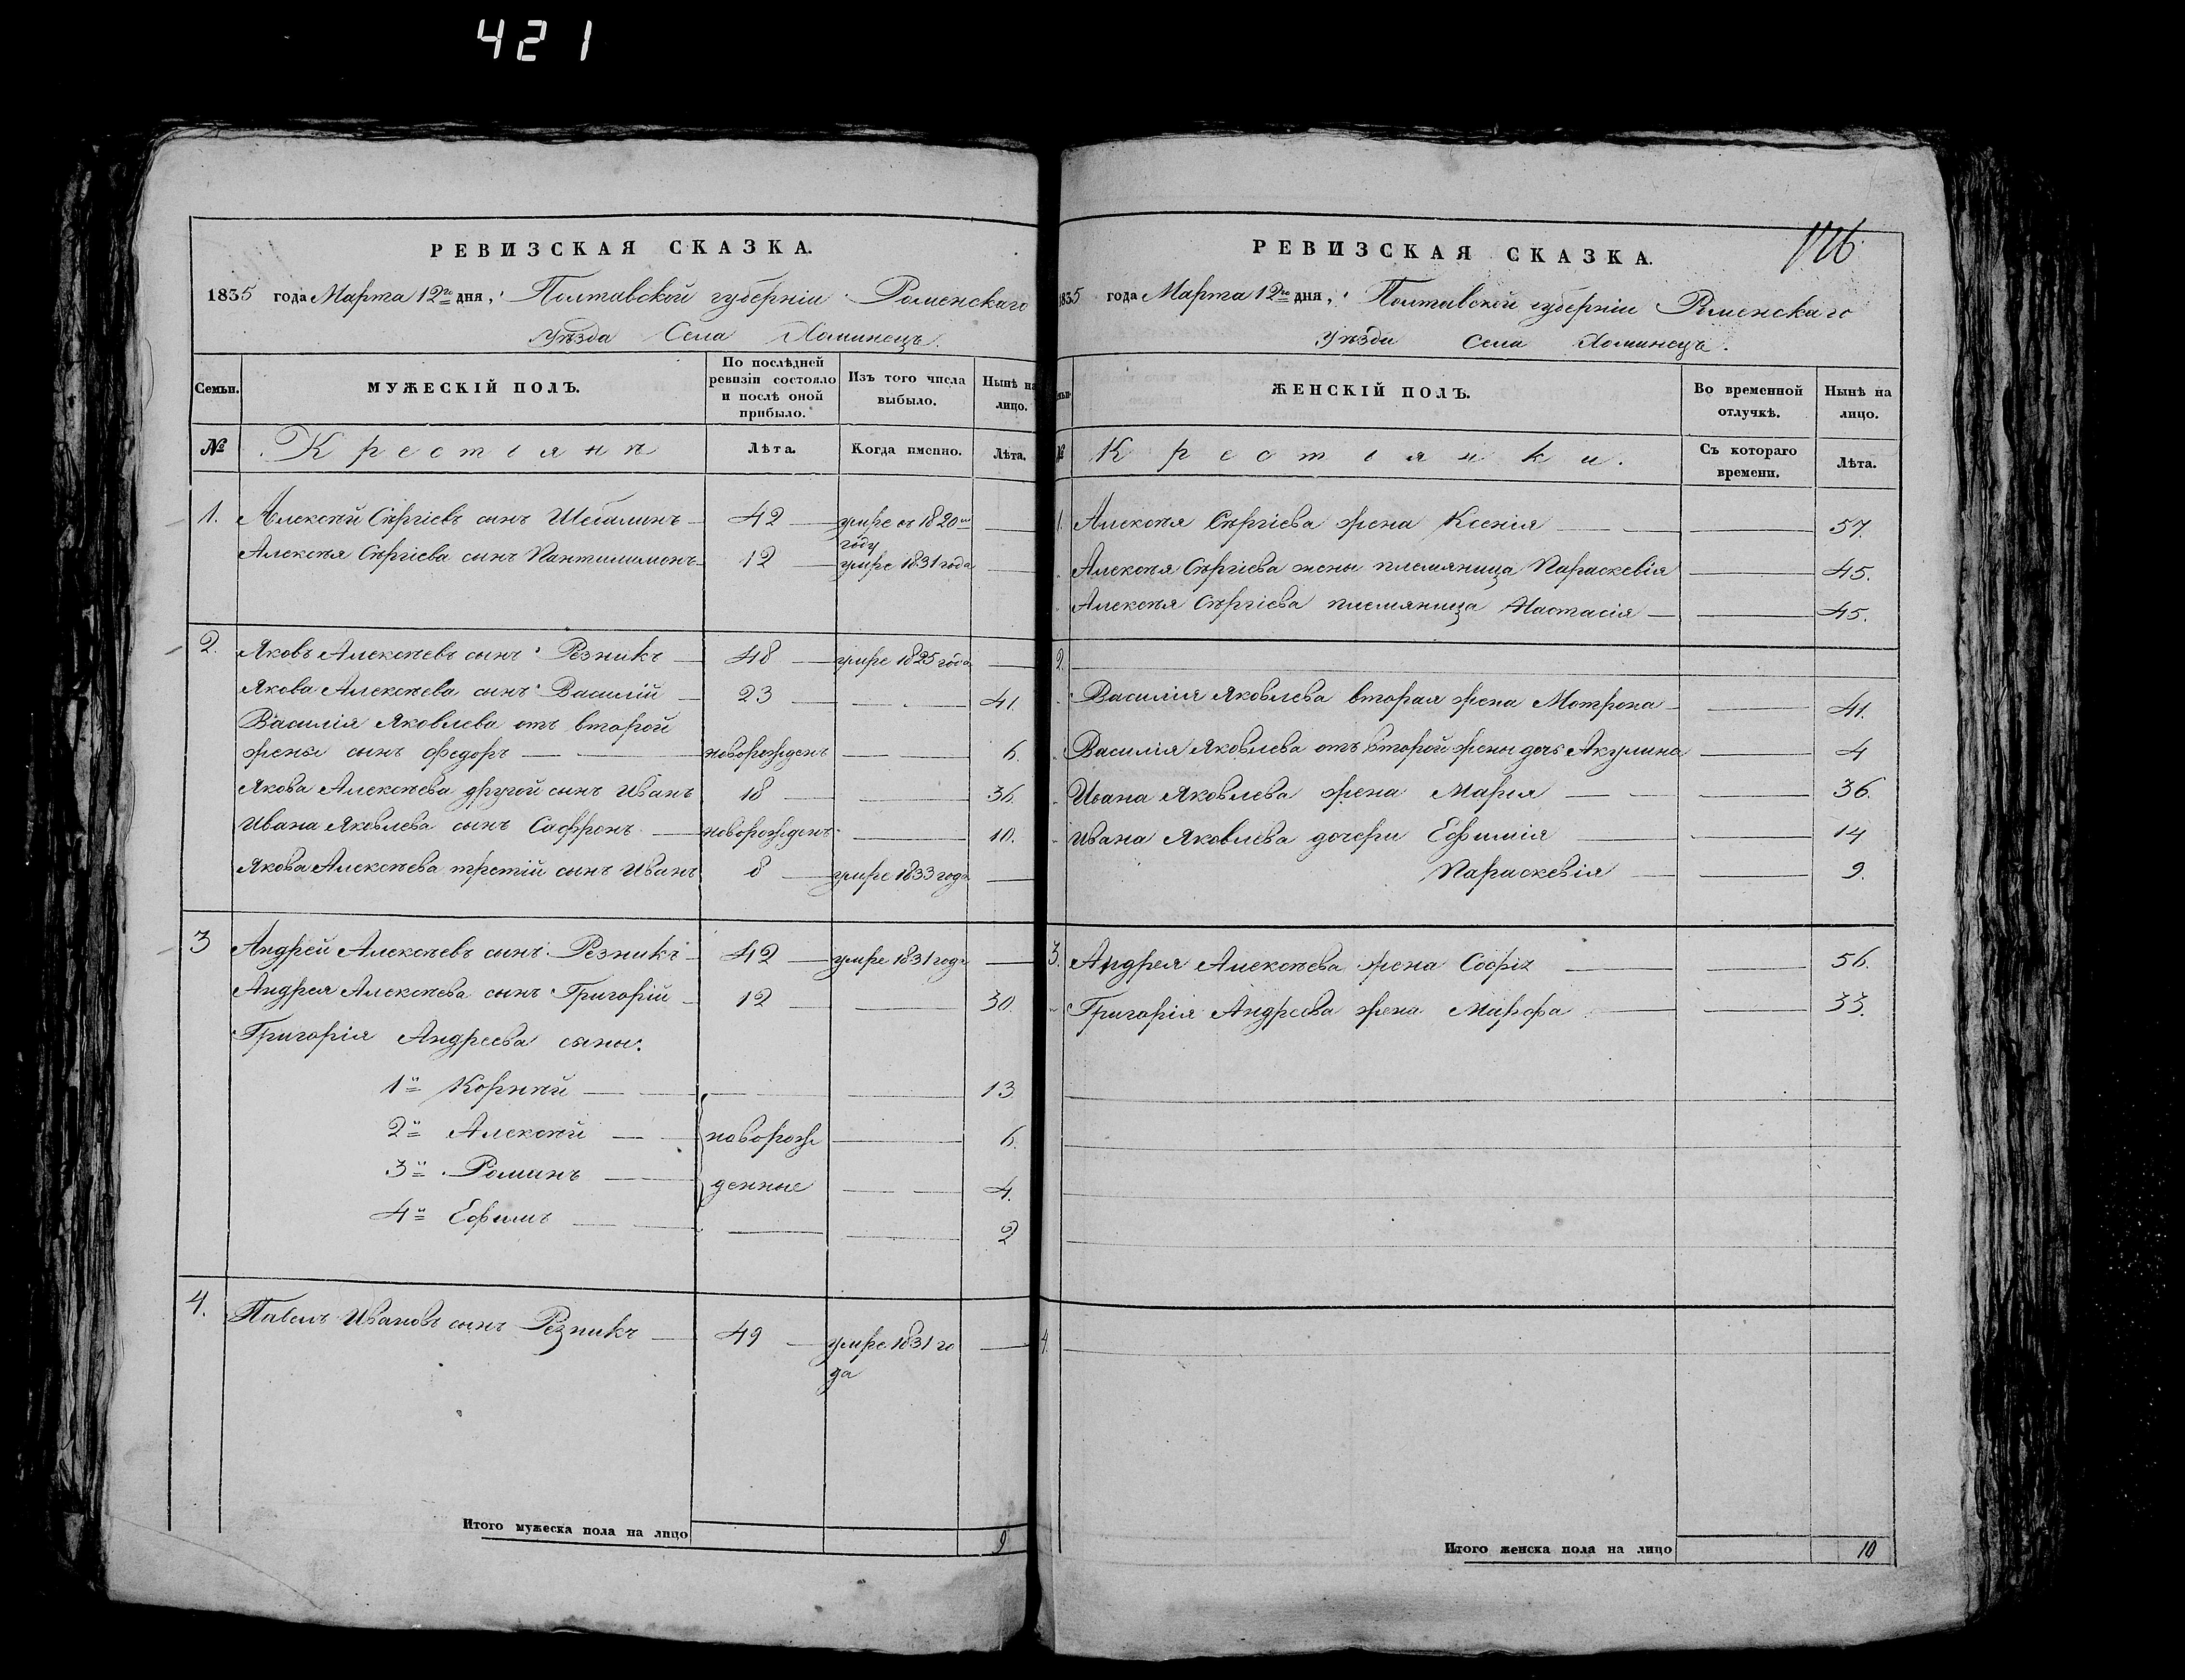 421
РЕВИЗСКАЯ СКАЗКА.
1835 года Марта 12го дня, Полтавской губерніи Роменскаго
Уѣзда Села Хоминецъ.
Семьи. МУЖЕСКІЙ ПОЛЪ. По послѣдней ревизіи состояло и послѣ оной прибыло. Изъ того числа выбыло. Нынѣ на лицо.
№ Крестіянѣ Лѣта. Когда именно. Лѣта.
1. Алексѣй Сергіевъ сынъ Шебалинъ 42 умре въ 1820м году
Алексѣя Сергіева сынъ Пантилимонъ 12 умре 1831 года
2. Яковъ Алексѣевъ сынъ Резникъ 48 умре 1825 года
Якова Алексѣева сынъ Василій 23 41
Василія Яковлева отъ второй
жены сынъ Федоръ новорожденъ 6.
Якова Алексѣева другой сынъ Иванъ 18 36.
Ивана Яковлева сынъ Сафронъ новорожденъ 10.
Якова Алексѣева третій сынъ Иванъ 8 умре 1833 года
3 Андрей Алексѣевъ сынъ Резникъ 42 умре 1831 года
Андрея Алексѣева сынъ Григорій 12 30.
Григорія Андреева сыны:
1й Корнѣй 13
2й Алексѣй новорож 6.
3й Романъ денные 4.
4й Ефимъ 2
4. Павелъ Ивановъ сынъ Резникъ 49 умре 1831 го
да
Итого мужеска пола на лицо 9
РЕВИЗСКАЯ СКАЗКА.
1835 года Марта 12го дня, Полтавской губерніи Роменскаго
Уѣзда Села Хоминецъ.
ЖЕНСКІЙ ПОЛЪ. Во временной отлучкѣ. Нынѣ на лицо.
№ Крестіянки. Съ котораго времени. Лѣта.
1. Алексѣя Сергіева жена Ксенія 57.
Алексѣя Сергіева жены племяница Параскевія 45.
Алексѣя Сергіева племяница Настасія 45.
2.
Василія Яковлева вторая жена Мотрона 41.
Василія Яковлева отъ второй жены дочь Акулина 4
Ивана Яковлева жена Марія 36.
Ивана Яковлева дочери Ефимія 14
Параскевія 9.
3. Андрея Алексѣева жена Софія 56.
Григорія Андреева жена Марфа 33.
4.
Итого женска пола на лицо 10